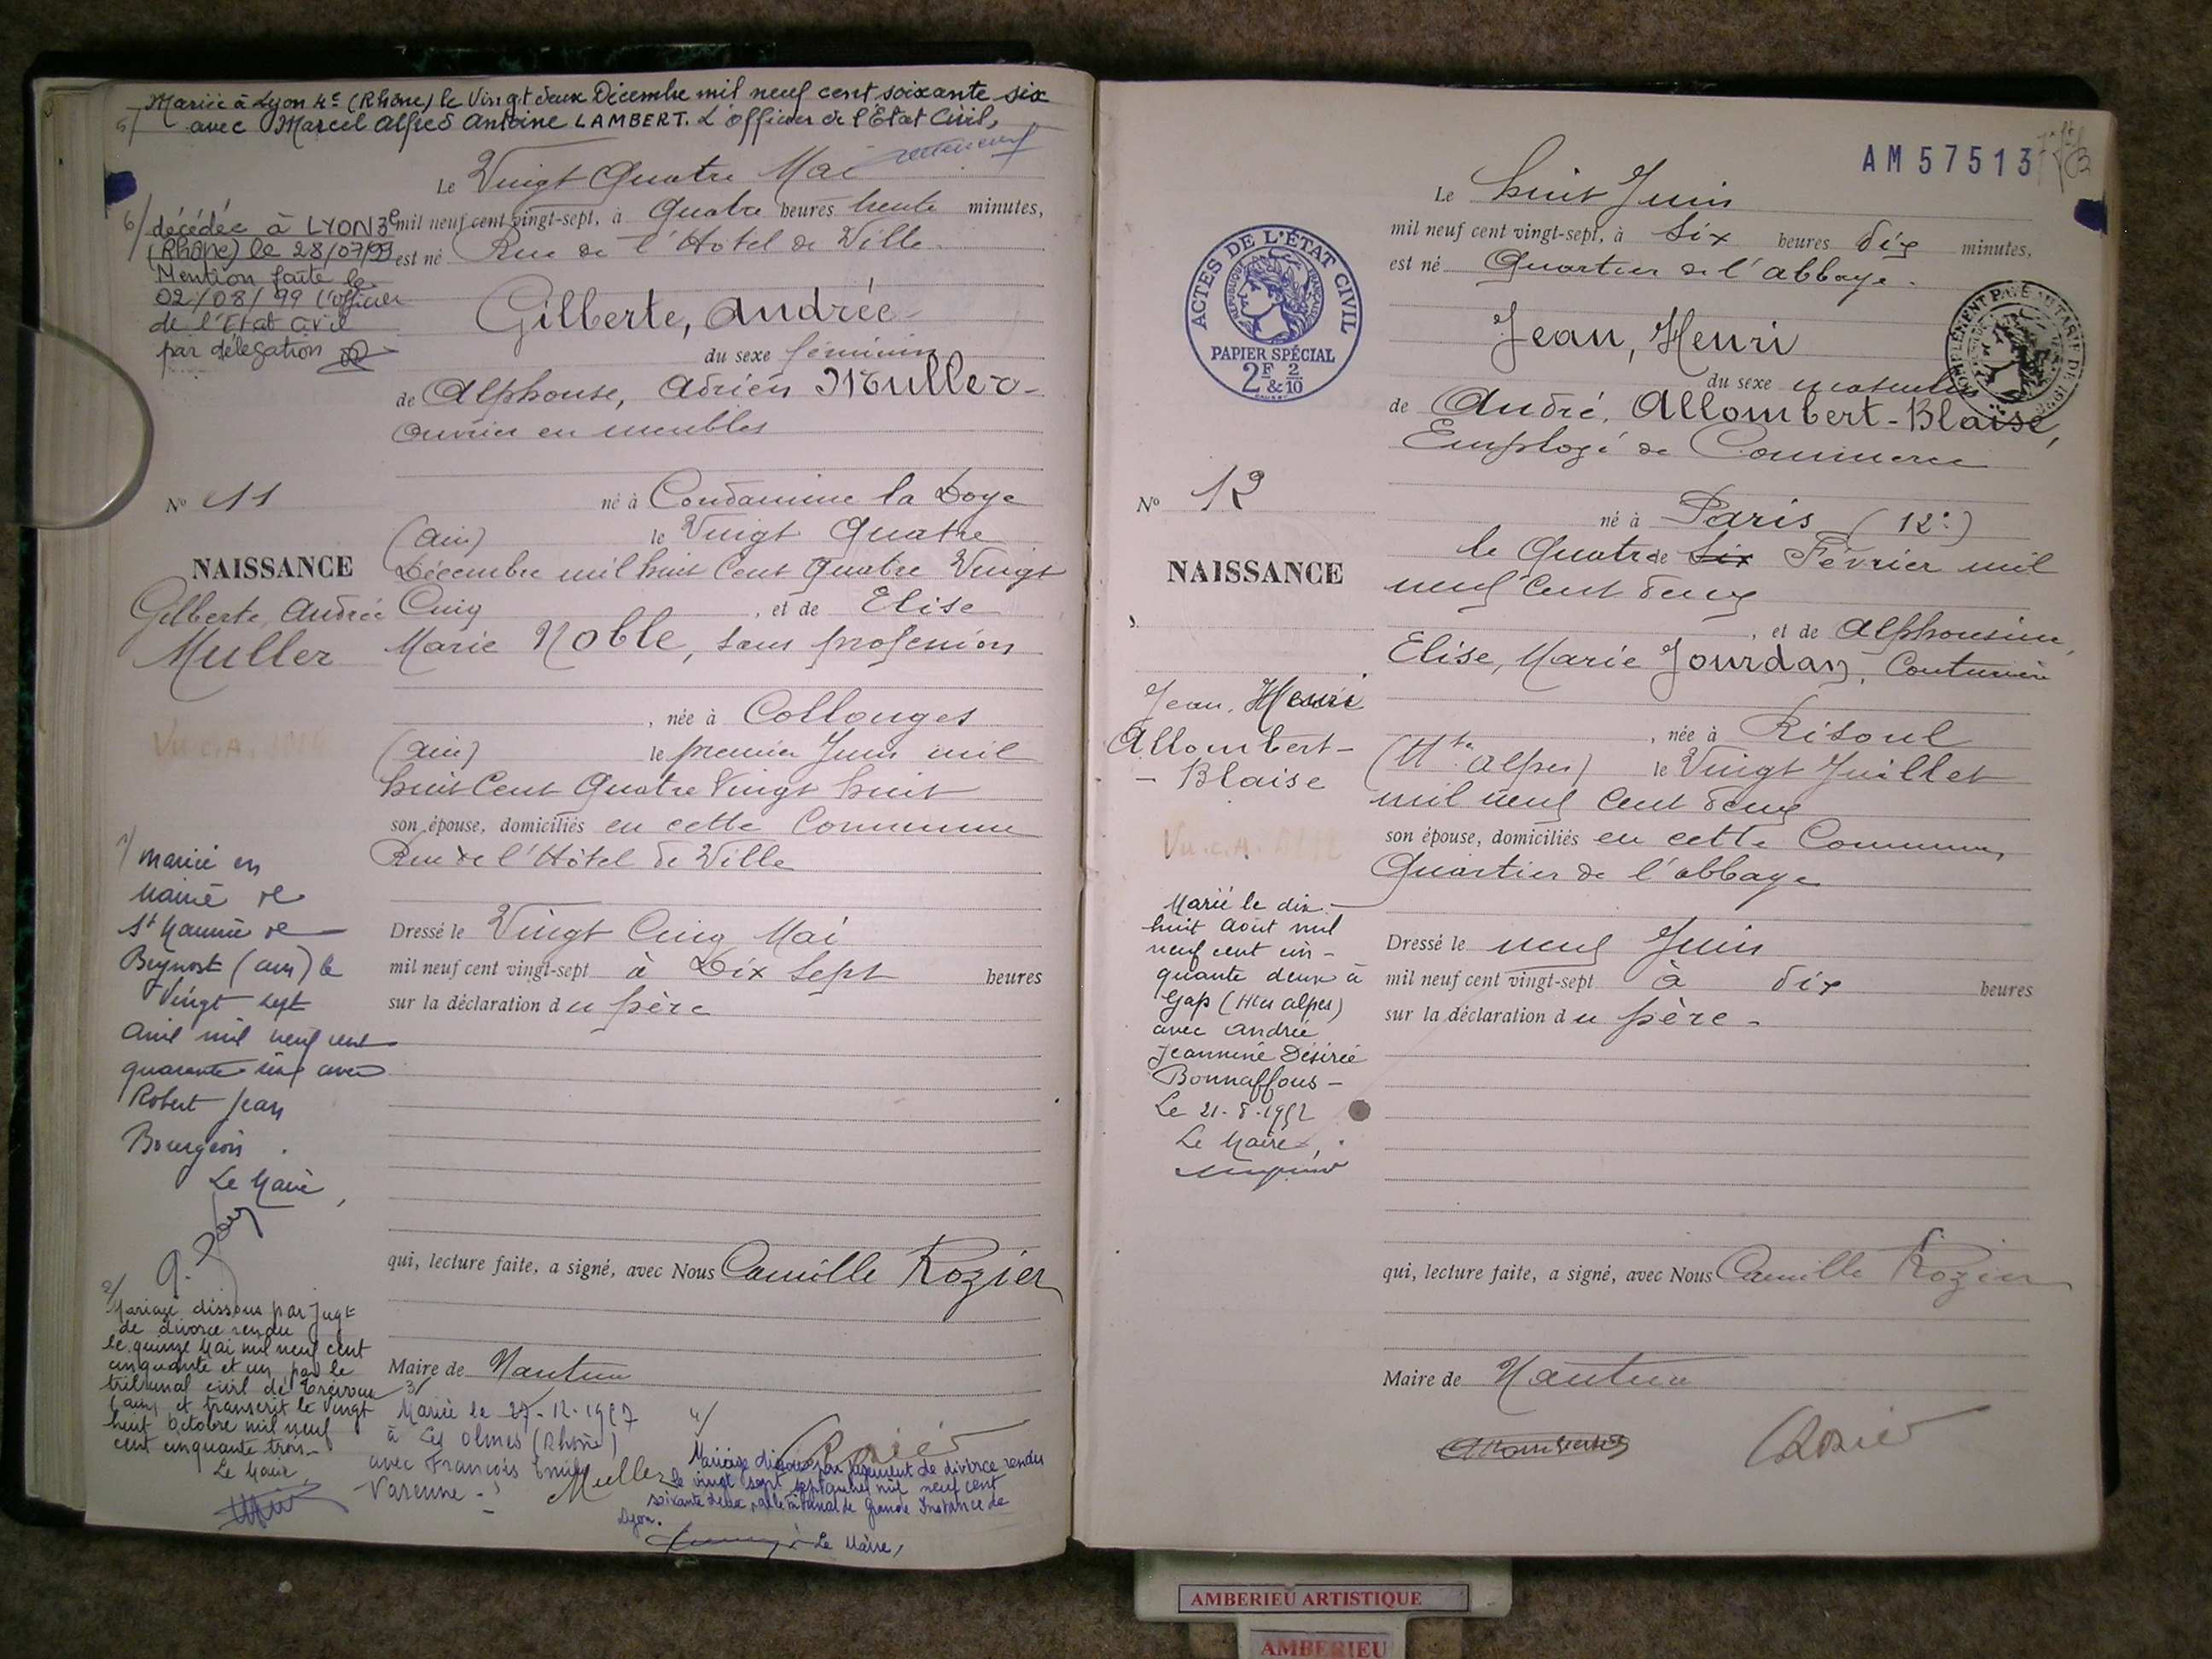 5/ Mariée à Lyon 4e (Rhône) le Vingt deux Décembre mil neuf cent soixante six
avec Marcel Alfred Antoine LAMBERT. L'officier de l'Etat Civil,
Le Vingt Quatre Mai
mil neuf cent vingt-sept, à Quatre heures trente minutes,
est né Rue de l'Hotel de Ville
Gilberte, Andrée
du sexe féminin
de Alphonse, Adrien Muller
Ouvrier en meubles
né à Condamine la Doye
(Ain) le Vingt Quatre
Décembre mil huit Cent Quatre Vingt
Cinq, et de Elise
Marie Noble, sans profession
, née à Collonges
(Ain) le premier Juin mil
huit Cent Quatre Vingt huit
son épouse, domiciliés en cette Commune
Rue de l'Hôtel de Ville
Dressé le Vingt Cinq Mai
mil neuf cent vingt-sept à Dix Sept heures
sur la déclaration du père
qui, lecture faite, a signé, avec Nous Camille Rozier
Maire de Nantua
Muller
Rozier
6/ décédée à LYON 3e
(Rhône) le 28/07/99
Mention faite le
02/08/99 l'officier
de l'Etat civil
par délégation
No 11
NAISSANCE
Gilberte, Andrée
Muller
Vu.C.A.
1/ mariée en
Mairie de
St Maurice de
Beynost (ain) le
Vingt sept
Avril mil neuf cent
quarante six avec
Robert Jean
Bourgeois.
Le Maire,
2/
Mariage dissous par Jugt
de divorce rendu
le quinze Mai mil neuf cent
cinquante et un par le
tribunal civil de Trévoux
(ain) et transcrit le vingt
huit Octobre mil neuf
cent cinquante trois
Le Maire
3/
Mariée le 27-12-1957
à Les Olmes (Rhône)
avec François Emile
Varenne
4/
Mariage dissous par jugement de divorce rendu
le vingt sept septembre mil neuf cent
soixante deux par le Tribunal de Grande Instance de
Lyon.
Le Maire,
AM 57513
ACTES DE L'ÉTAT CIVIL
RÉPUBLIQUE FRANÇAISE
PAPIER SPÉCIAL
2F &2/10
Le huit Juin
mil neuf cent vingt-sept, à Six heures dix minutes,
est né Quartier de l'abbaye.
Jean, Henri
du sexe masculin
de André, Allombert-Blaise,
Employé de Commerce
né à Paris (12e)
le Quatre de Six Février mil
neuf Cent deux
, et de Alphonsine,
Elise, Marie Jourdan, Couturière
, née à Risoul
(Htes Alpes) le Vingt Juillet
mil neuf Cent deux
son épouse, domiciliés en cette Commune,
Quartier de l'abbaye
Dressé le neuf Juin
mil neuf cent vingt-sept à dix heures
sur la déclaration du père.
qui, lecture faite, a signé, avec Nous Camille Rozier
Maire de Nantua
Rozier
No 12
NAISSANCE
Jean, Henri
Allombert-
-Blaise
Vu.C.A.
Marié le dix-
huit Août mil
neuf cent cin-
quante deux à
Gap (Htes Alpes)
avec Andrée
Jeannine Désirée
Bonnaffous -
Le 21-8-1952
Le Maire,
AMBERIEU ARTISTIQUE
AMBERIEU